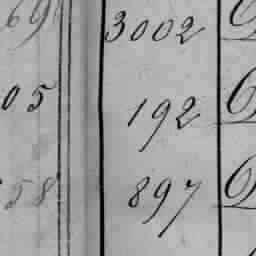 69 3002
05 192
58 897